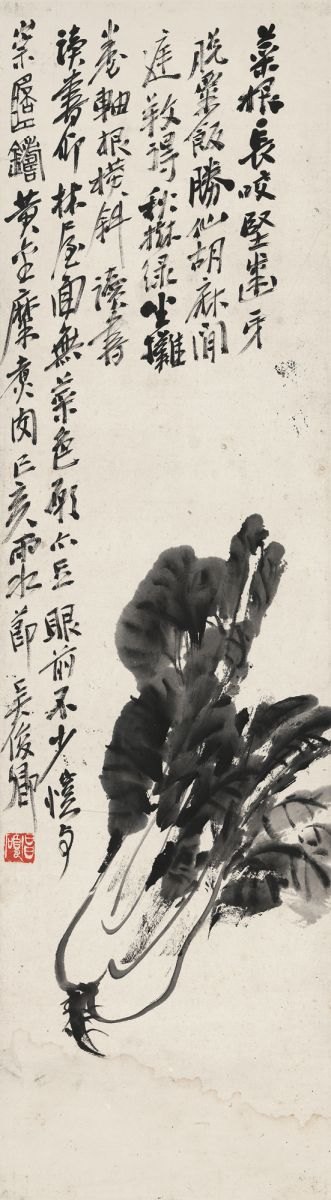 菜根長咬堅齒牙
脫粟飯勝仙胡麻閒
庭數得秋樹綠坐攤
卷軸根橫斜讀書
讀書仰林屋面無菜色願亦足眼前不少愷与
崇鑄黃金糜煮肉己亥雨水節吳俊卿